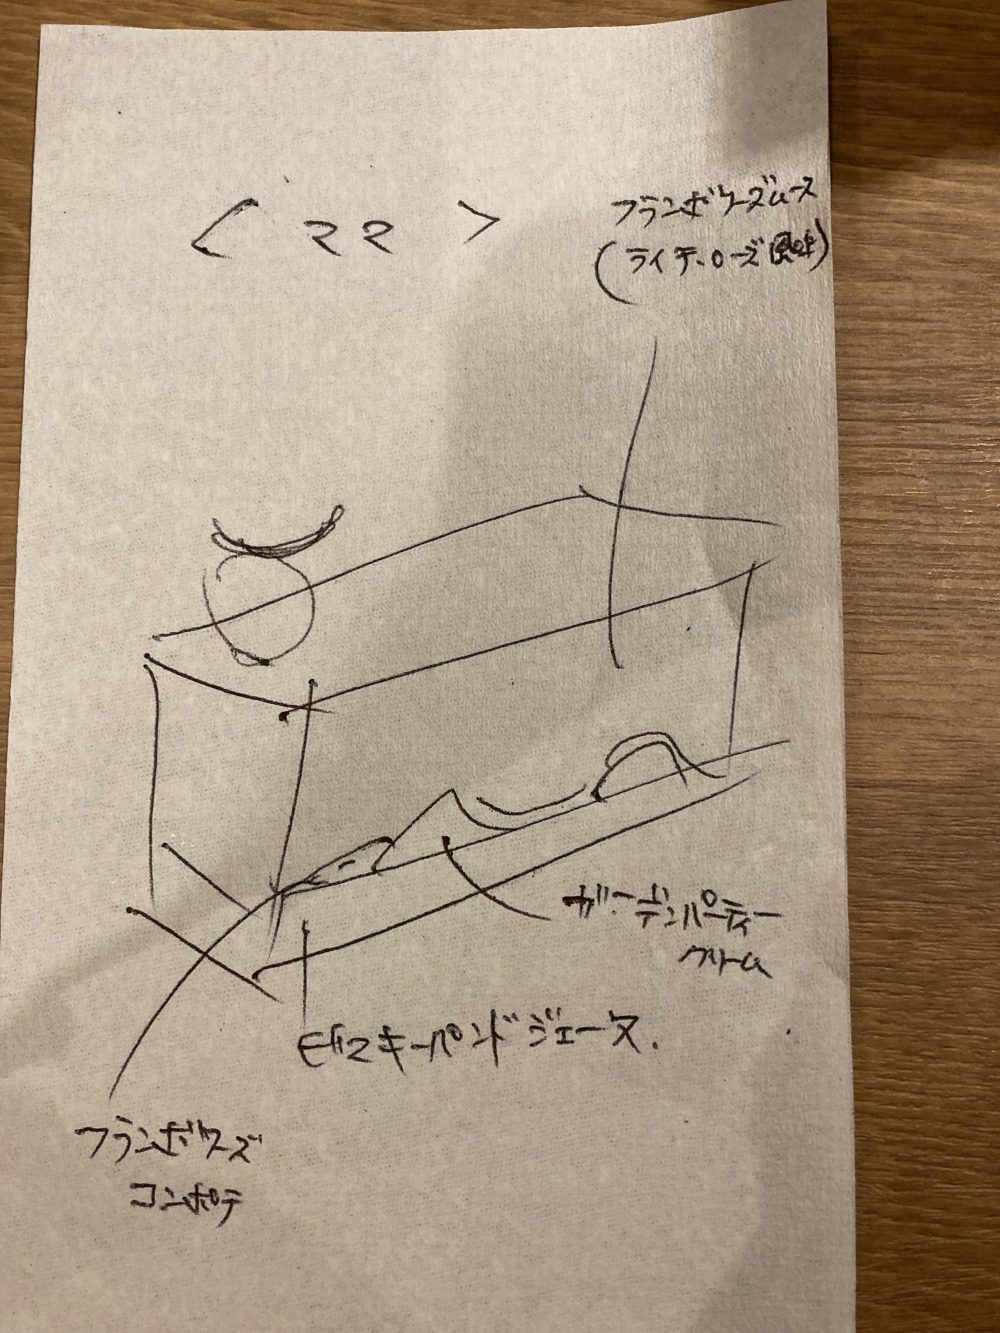 < ママ >
フランボワーズムース
(ライチ・ローズ風味)
ガーデンパーティー
クリーム
ビスキーパンドジェーヌ.
フランボワーズ
コンポテ